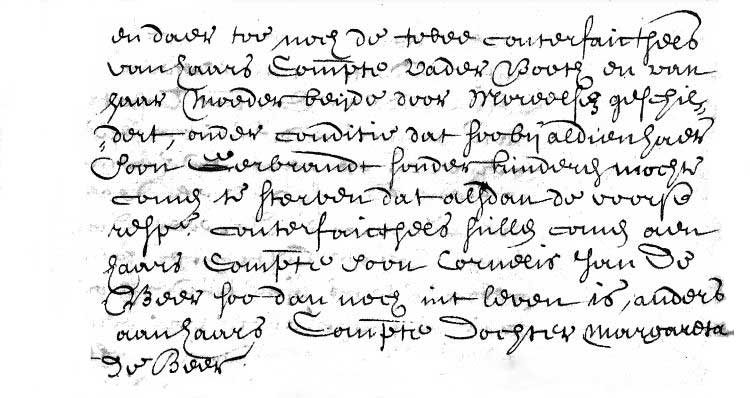 en daer toe noch de twee conterfaictsels
van haars Compte vader Booth en van
haar Moeder beijde door Moreelse geschil=
=dert, onder conditie dat soo bij aldien haer
Soon Gerbrandt sonder kinderen mochte
comen te sterven dat alsdan de voorse
respe. conterfaictsels sullen comen aen
haars Compte Soon Cornelis Jan de
Beer soo dan noch int leven is, anders
aan haars Compte Dochter Margareta
de Beer.